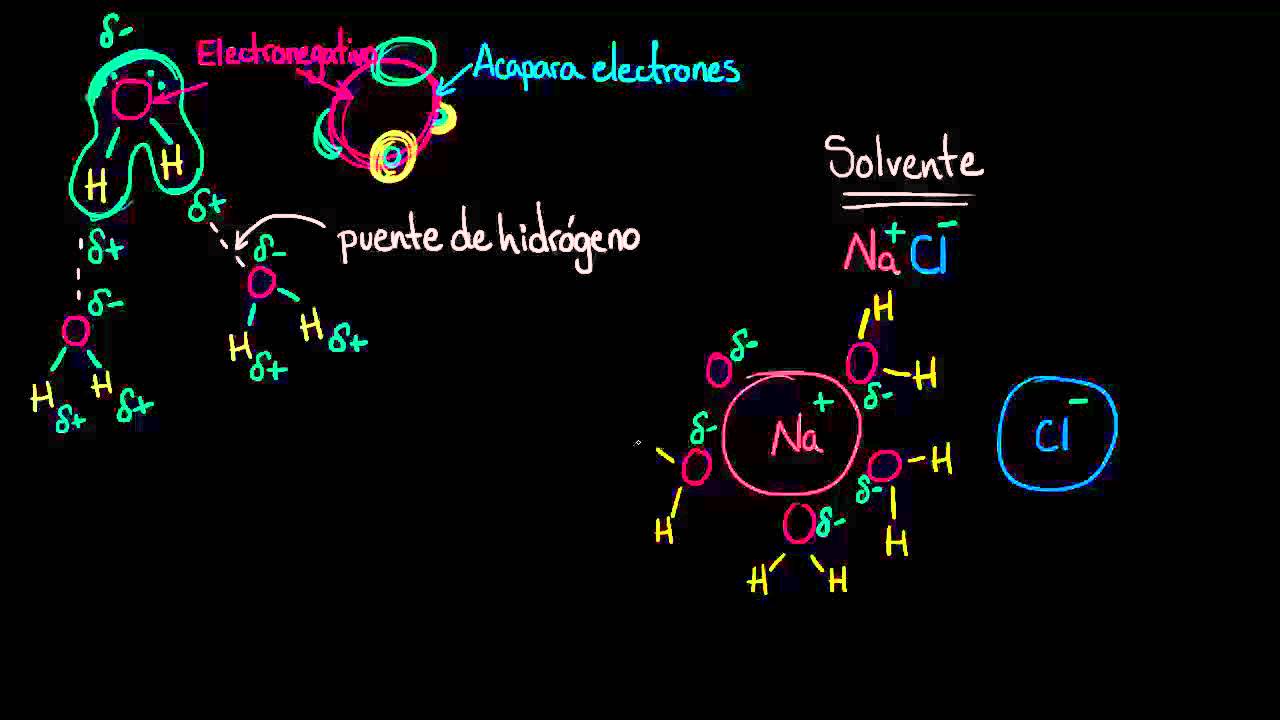 δ-
Electronegativo
Acapara electrones
O
H H
δ+
δ+
puente de hidrógeno
δ-
O
H H
δ+ δ+
δ-
O
H H
δ+ δ+
Solvente
Na+ Cl-
H
O H
δ-
O δ-
Na+
Cl-
δ-
O
H
O H
δ-
H
O δ-
H H